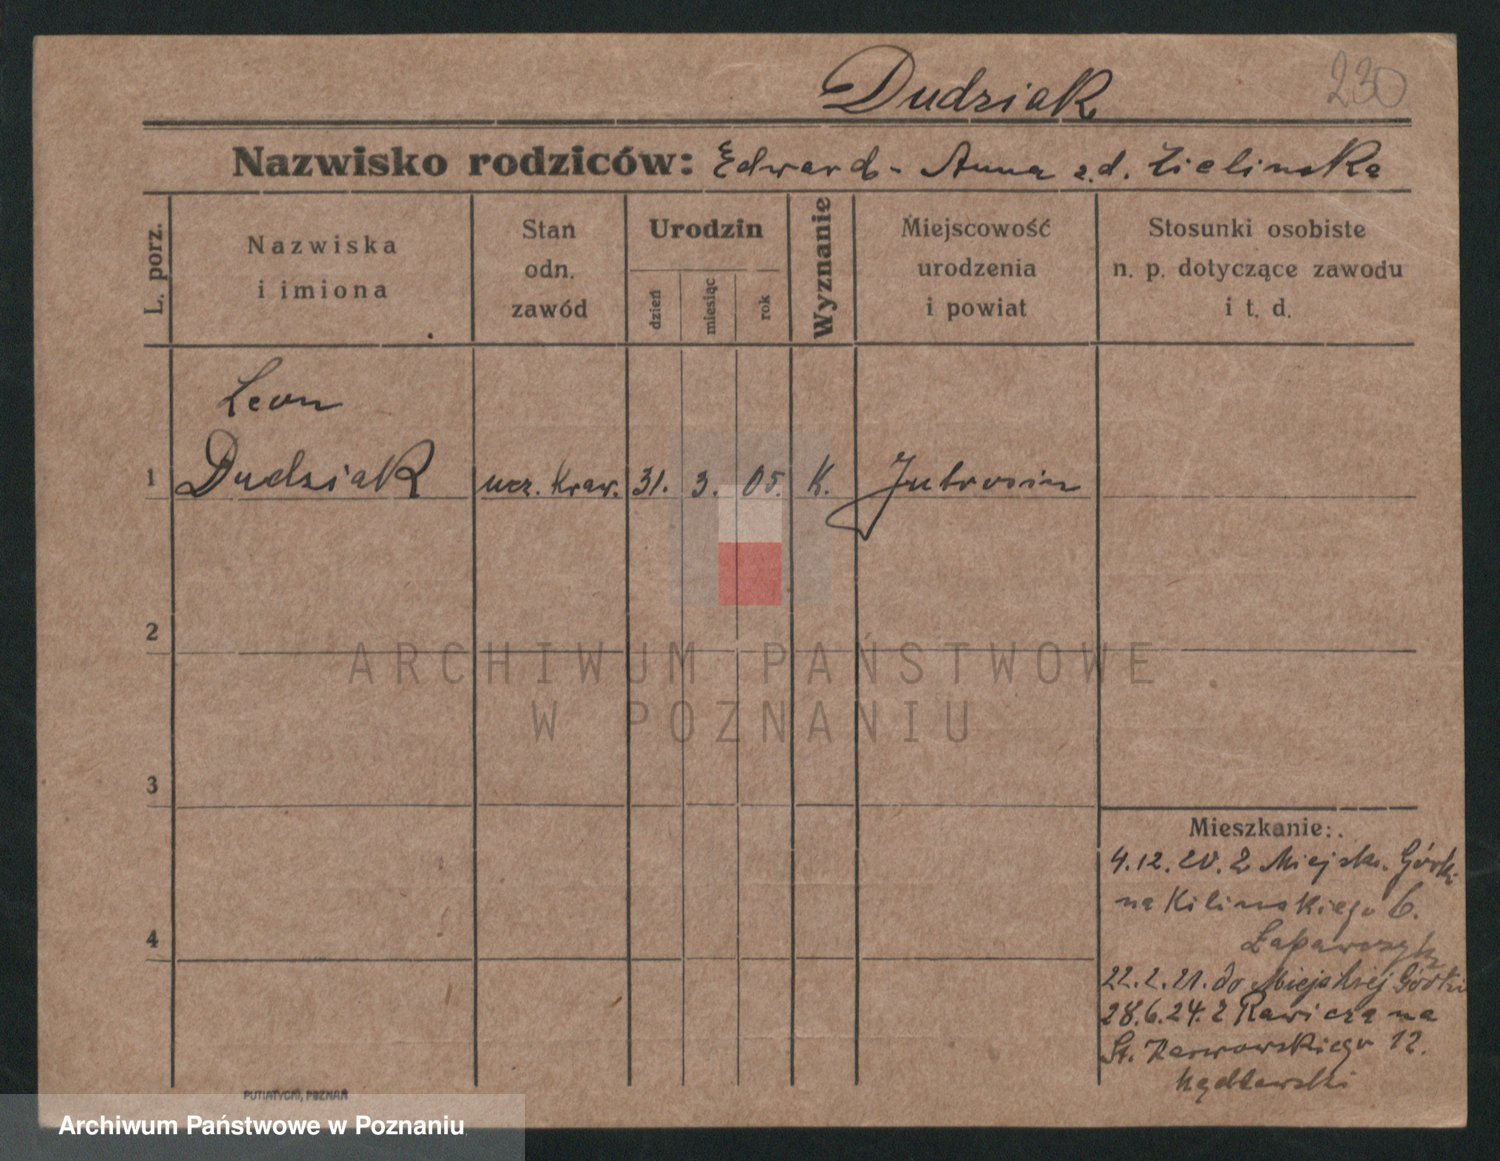 Dudziak
230
Nazwisko rodziców: Edward - Anna z.d. Zielinska
L. porz.
Nazwiska
i imiona
Stan
odn.
zawód
Urodzin
dzień
miesiąc
rok
Wyznanie
Miejscowość
urodzenia
i powiat
Stosunki osobiste
n. p. dotyczące zawodu
i t. d.
Leon
1 Dudziak ucz. kraw. 31. 3. 05. K. Jutrosin
2
ARCHIWUM PAŃSTWOWE
W POZNANIU
3
4
Mieszkanie:
4.12.20. z Miejsk. Górki
na Kilinskiego 6.
22.2.21. do Miejskiej Górki
28.6.24. z Rawicza na
St. Karwowskiego 12.
PUTIATYCKI, POZNAŃ
Archiwum Państwowe w Poznaniu